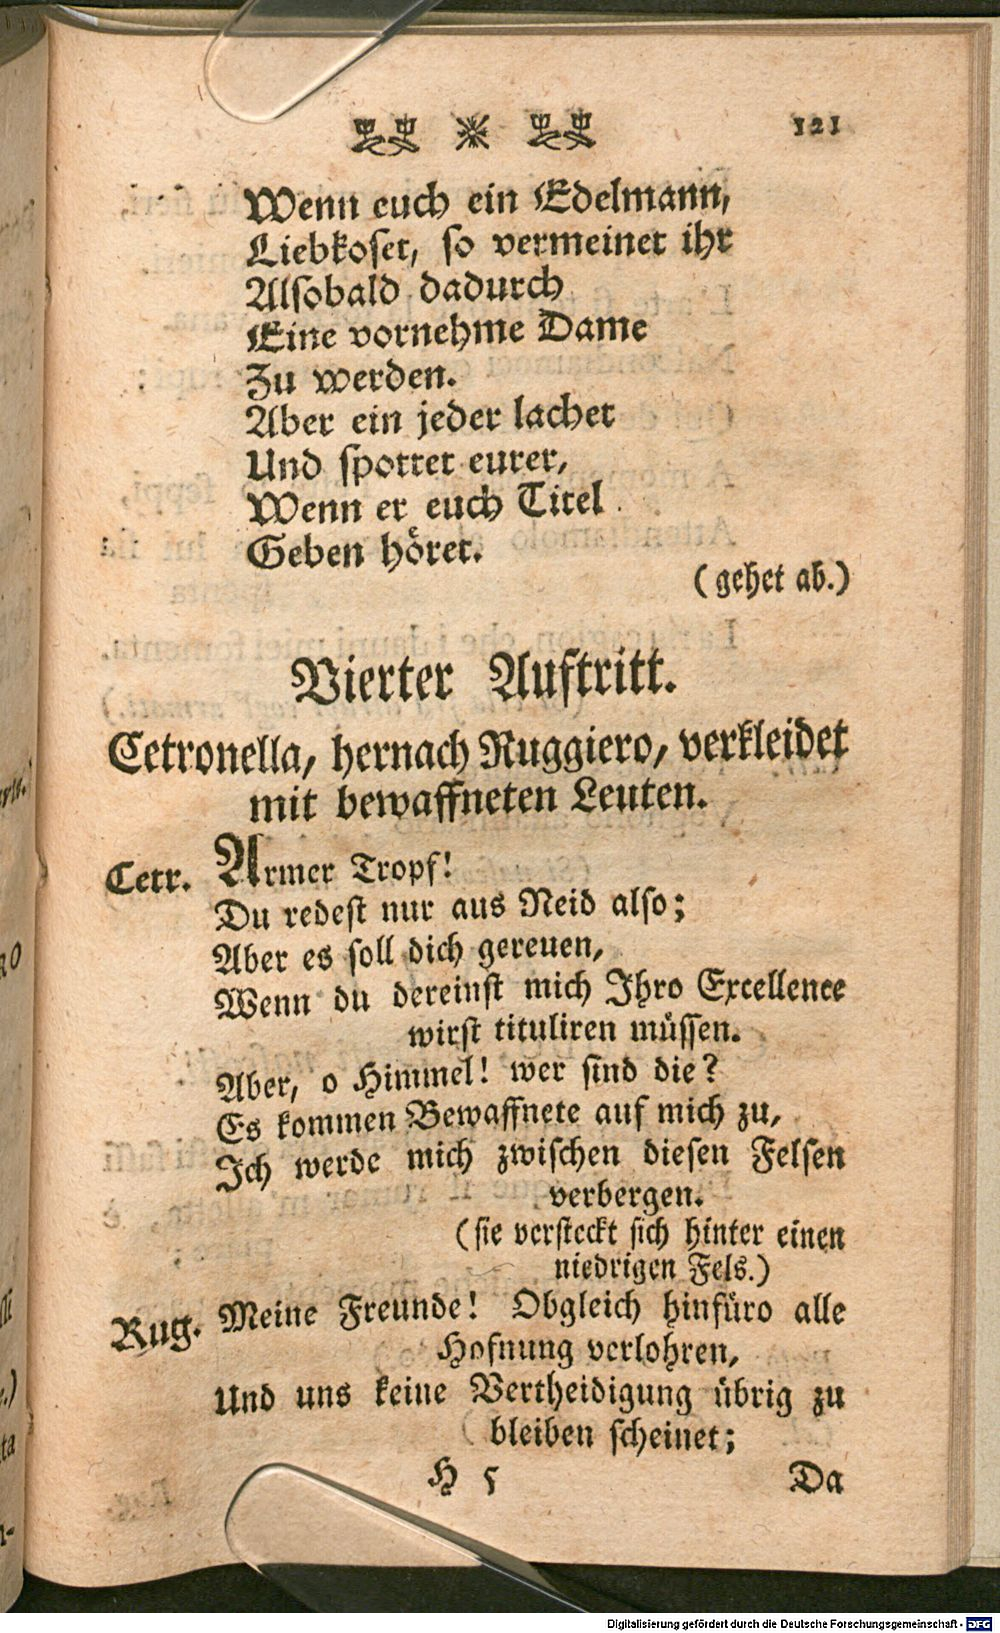 121
Wenn euch ein Edelmann,
Liebkoset, so vermeinet ihr
Alsobald dadurch
Eine vornehme Dame
Zu werden.
Aber ein jeder lachet
Und spottet eurer,
Wenn er euch Titel
Geben höret.
(gehet ab.)
Vierter Auftritt.
Cetronella, hernach Ruggiero, verkleidet
mit bewaffneten Leuten.
Cetr. Armer Tropf!
Du redest nur aus Neid also;
Aber es soll dich gereuen,
Wenn du dereinst mich Ihro Excellence
wirst tituliren müssen.
Aber, o Himmel! wer sind die?
Es kommen Bewaffnete auf mich zu,
Ich werde mich zwischen diesen Felsen
verbergen.
(sie versteckt sich hinter einen
niedrigen Fels.)
Rug. Meine Freunde! Obgleich hinfüro alle
Hofnung verlohren,
Und uns keine Vertheidigung übrig zu
bleiben scheinet;
H 5 Da
Digitalisierung gefördert durch die Deutsche Forschungsgemeinschaft - DFG